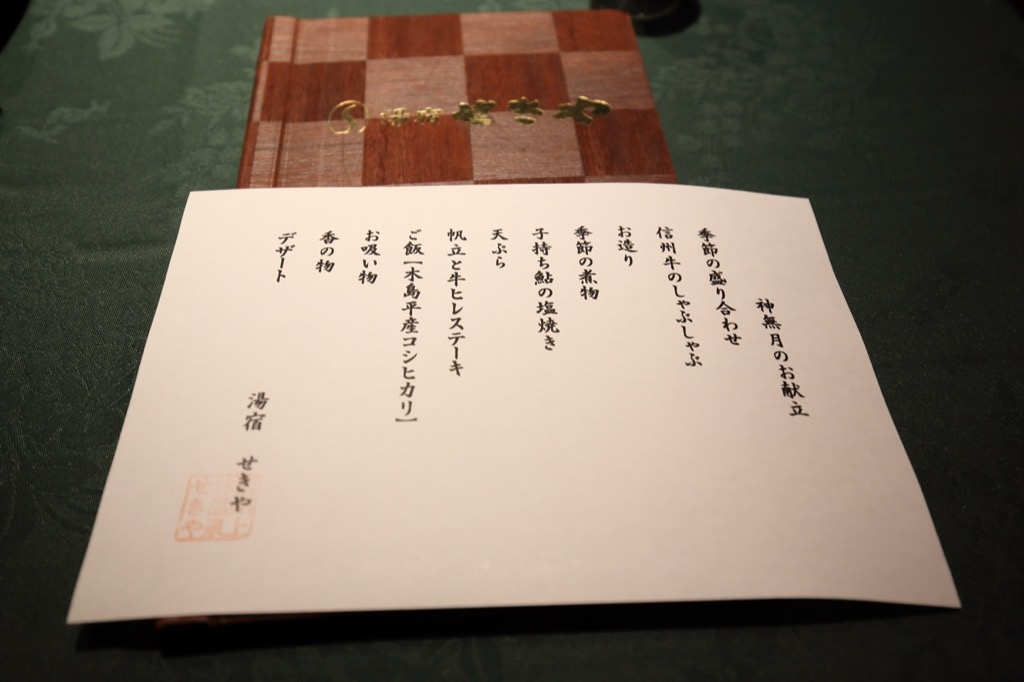 湯宿 せきや
神無月のお献立
季節の盛り合わせ
信州牛のしゃぶしゃぶ
お造り
季節の煮物
子持ち鮎の塩焼き
天ぷら
帆立と牛ヒレステーキ
ご飯【木島平産コシヒカリ】
お吸い物
香の物
デザート
湯宿 せきや
せきや